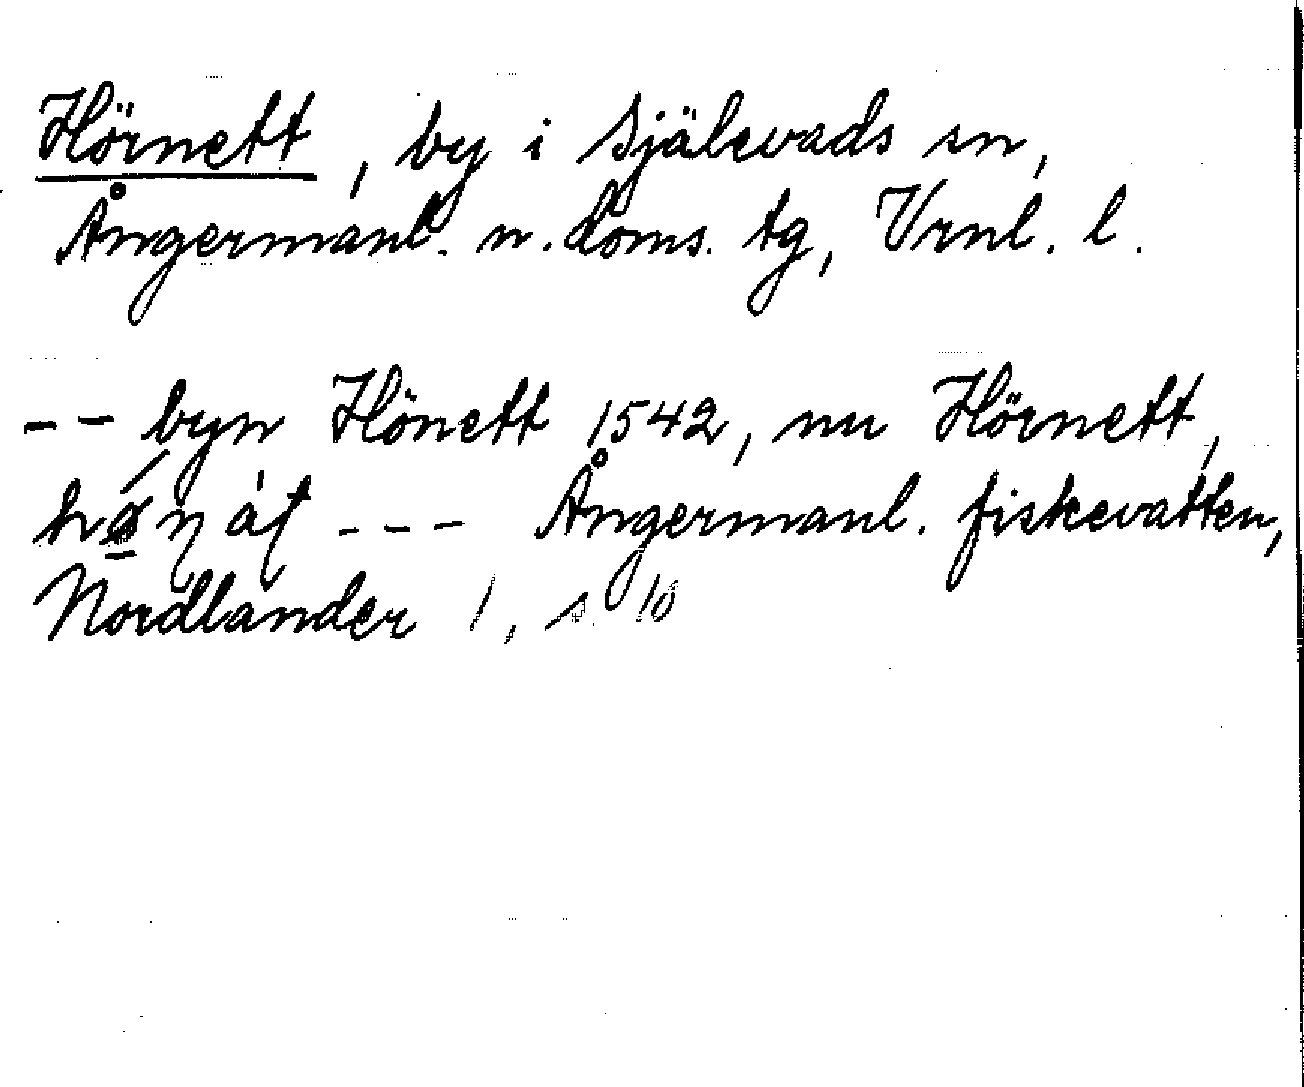 Hörnett, by i Själevads sn,
Ångermanl. n. doms. tg, Vrnl. l.
-- byn Hönett 1542, nu Hörnett,
--- Ångermanl. fiskevatten,
Nordlander 1, s. 10